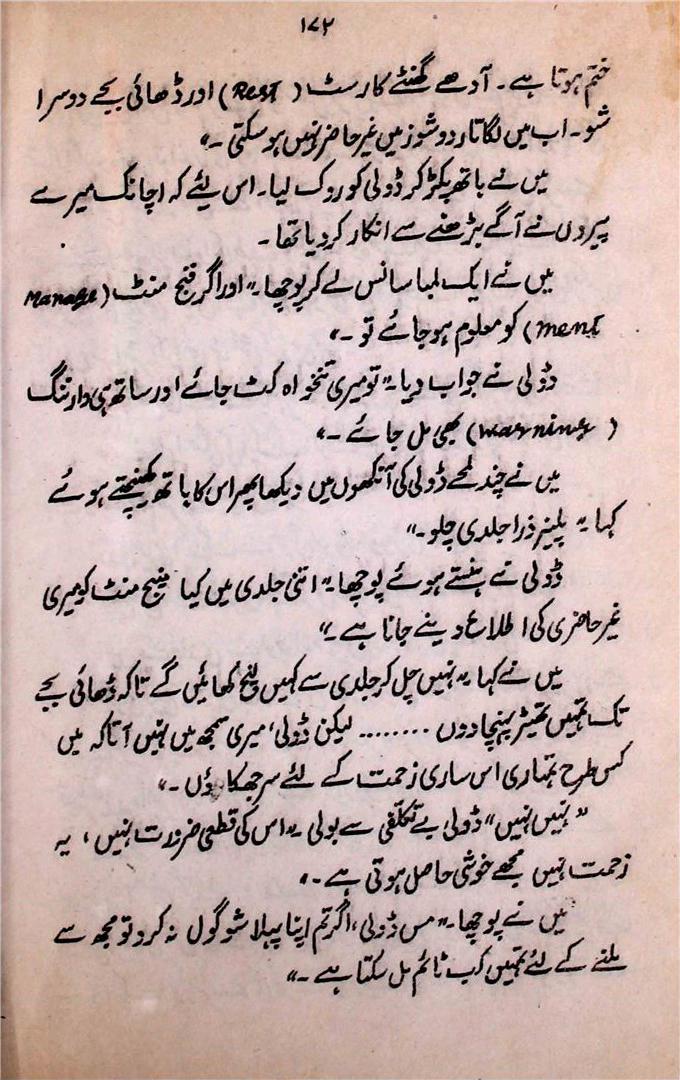 ۱۷۲
ختم ہوتا ہے۔ آدھے گھنٹے کا رسٹ (Rest) اور ڈھائی بجے دوسرا
شو۔ اب میں لگاتار دو شوز میں غیر حاضر نہیں ہو سکتی۔"
میں نے ہاتھ پکڑ کر ڈولی کو روک لیا۔ اس لئے کہ اچانک میرے
پیروں نے آگے بڑھنے سے انکار کر دیا تھا۔
میں نے ایک لمبا سانس لے کر پوچھا۔" اور اگر منیج منٹ (Manage
ment) کو معلوم ہو جائے تو۔"
ڈولی نے جواب دیا۔" تو میری تنخواہ کٹ جائے اور ساتھ ہی وارننگ
(warning) بھی مل جائے۔"
میں نے چند لمحے ڈولی کی آنکھوں میں دیکھا پھر اس کا ہاتھ کھینچتے ہوئے
کہا " پلیز ذرا جلدی چلو۔"
ڈولی نے ہنستے ہوئے پوچھا۔" اتنی جلدی میں کیا منیج منٹ کو میری
غیر حاضری کی اطلاع دینے جانا ہے۔"
میں نے کہا " نہیں چل کر جلدی سے کہیں لنچ کھائیں گے تاکہ ڈھائی بجے
تک تمہیں تھیٹر پہنچا دوں ........ لیکن ڈولی، میری سمجھ میں نہیں آتا کہ میں
کس طرح تمہاری اس ساری زحمت کے لئے سر جھکاؤں۔"
" نہیں نہیں" ڈولی بے تکلفی سے بولی۔" اس کی قطعی ضرورت نہیں، یہ
زحمت نہیں مجھے خوشی حاصل ہوتی ہے۔"
میں نے پوچھا۔" مس ڈولی، اگر تم اپنا پہلا شو گول نہ کرو تو مجھ سے
ملنے کے لئے تمہیں کب ٹائم مل سکتا ہے۔"